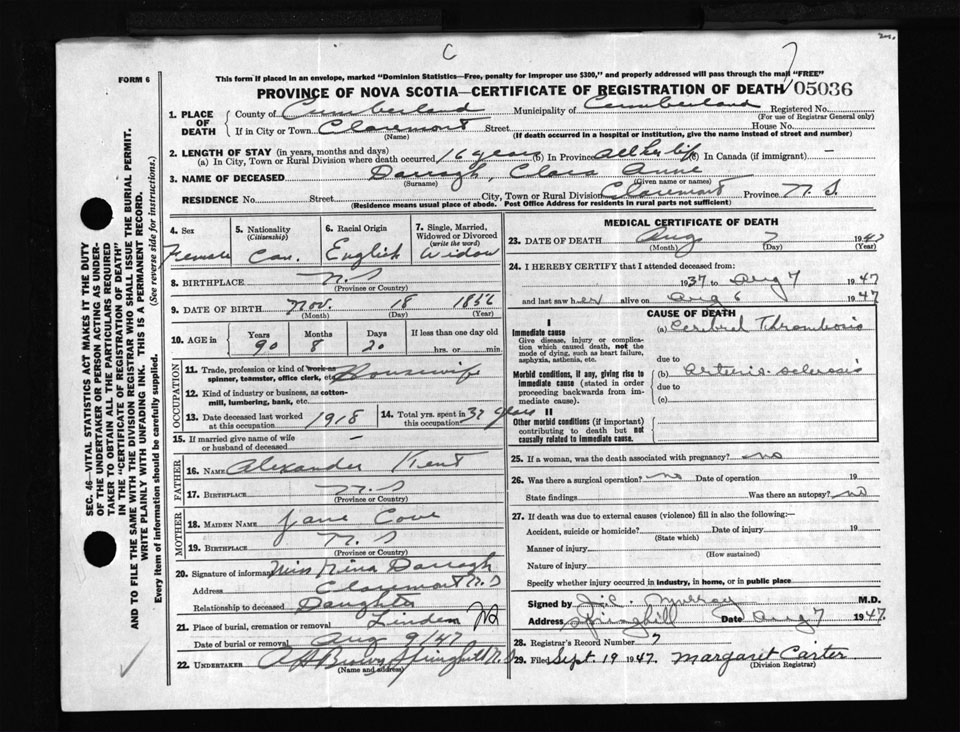 C
FORM 6
This form if placed in an envelope, marked "Dominion Statistics—Free, penalty for improper use $300," and properly addressed will pass through the mail "FREE"
PROVINCE OF NOVA SCOTIA—CERTIFICATE OF REGISTRATION OF DEATH 05036
1. PLACE OF DEATH
County of Cumberland Municipality of Cumberland Registered No.
(For use of Registrar General only)
If in City or Town Claremont Street House No.
(Name) (If death occurred in a hospital or institution, give the name instead of street and number)
2. LENGTH OF STAY (in years, months and days)
(a) In City, Town or Rural Division where death occurred 16 years (b) In Province all her life (c) In Canada (if immigrant) —
3. NAME OF DECEASED Darragh, Clara Anne
(Surname) (Given name or names)
RESIDENCE No. Street City, Town or Rural Division Claremont Province N. S.
(Residence means usual place of abode. Post Office Address for residents in rural parts not sufficient)
4. Sex
Female
5. Nationality
(Citizenship)
Can.
6. Racial Origin
English
7. Single, Married, Widowed or Divorced
(write the word)
Widow
8. BIRTHPLACE N. S
(Province or Country)
9. DATE OF BIRTH Nov. 18 1856
(Month) (Day) (Year)
10. AGE in
Years Months Days If less than one day old
90 8 20 hrs. or min.
OCCUPATION
11. Trade, profession or kind of work as
spinner, teamster, office clerk, etc. Housewife
12. Kind of industry or business, as cotton-
mill, lumbering, bank, etc.
13. Date deceased last worked
at this occupation 1918
14. Total yrs. spent in
this occupation 37 years
15. If married give name of wife
or husband of deceased —
FATHER
16. NAME Alexander Kent
17. BIRTHPLACE N. S
(Province or Country)
MOTHER
18. MAIDEN NAME Jane Cove
19. BIRTHPLACE N. S
(Province or Country)
20. Signature of informant Miss Nina Darragh
Address Claremont N. S
Relationship to deceased Daughter
21. Place of burial, cremation or removal Linden NS
Date of burial or removal Aug 9/47
22. UNDERTAKER Brown Springhill N. S.
(Name and address)
MEDICAL CERTIFICATE OF DEATH
23. DATE OF DEATH Aug 7 1947
(Month) (Day) (Year)
24. I HEREBY CERTIFY that I attended deceased from:
1937 to Aug 7 1947
and last saw her alive on Aug 6 1947
CAUSE OF DEATH
I
Immediate cause
Give disease, injury or complica-
tion which caused death, not the
mode of dying, such as heart failure,
asphyxia, asthenia, etc.
(a) Cerebral Thrombosis
due to
Morbid conditions, if any, giving rise to
immediate cause (stated in order
proceeding backwards from im-
mediate cause).
(b) Arterio-sclerosis
due to
(c)
II
Other morbid conditions (if important)
contributing to death but not
causally related to immediate cause.
25. If a woman, was the death associated with pregnancy? no
26. Was there a surgical operation? no Date of operation 19
State findings Was there an autopsy? no
27. If death was due to external causes (violence) fill in also the following:—
Accident, suicide or homicide? Date of injury 19
(State which)
Manner of injury
(How sustained)
Nature of injury
Specify whether injury occurred in industry, in home, or in public place
Signed by Murray M.D.
Address Springhill Date Aug 7 1947
28. Registrar's Record Number 7
29. Filed Sept. 19 1947. Margaret Carter
(Division Registrar)
SEC. 46—VITAL STATISTICS ACT MAKES IT THE DUTY
OF THE UNDERTAKER OR PERSON ACTING AS UNDER-
TAKER TO OBTAIN ALL THE PARTICULARS REQUIRED
IN THE "CERTIFICATE OF REGISTRATION OF DEATH"
AND TO FILE THE SAME WITH THE DIVISION REGISTRAR WHO SHALL ISSUE THE BURIAL PERMIT.
WRITE PLAINLY WITH UNFADING INK. THIS IS A PERMANENT RECORD.
Every item of information should be carefully supplied. (See reverse side for instructions.)